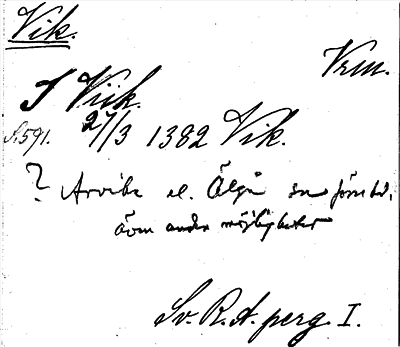 Vik.
Vrm.
I Viik.
S. 591. 27/3 1382 Vik.
? Arvika el. Älgå
även andra möjligheter
Sv. R. A. perg. I.